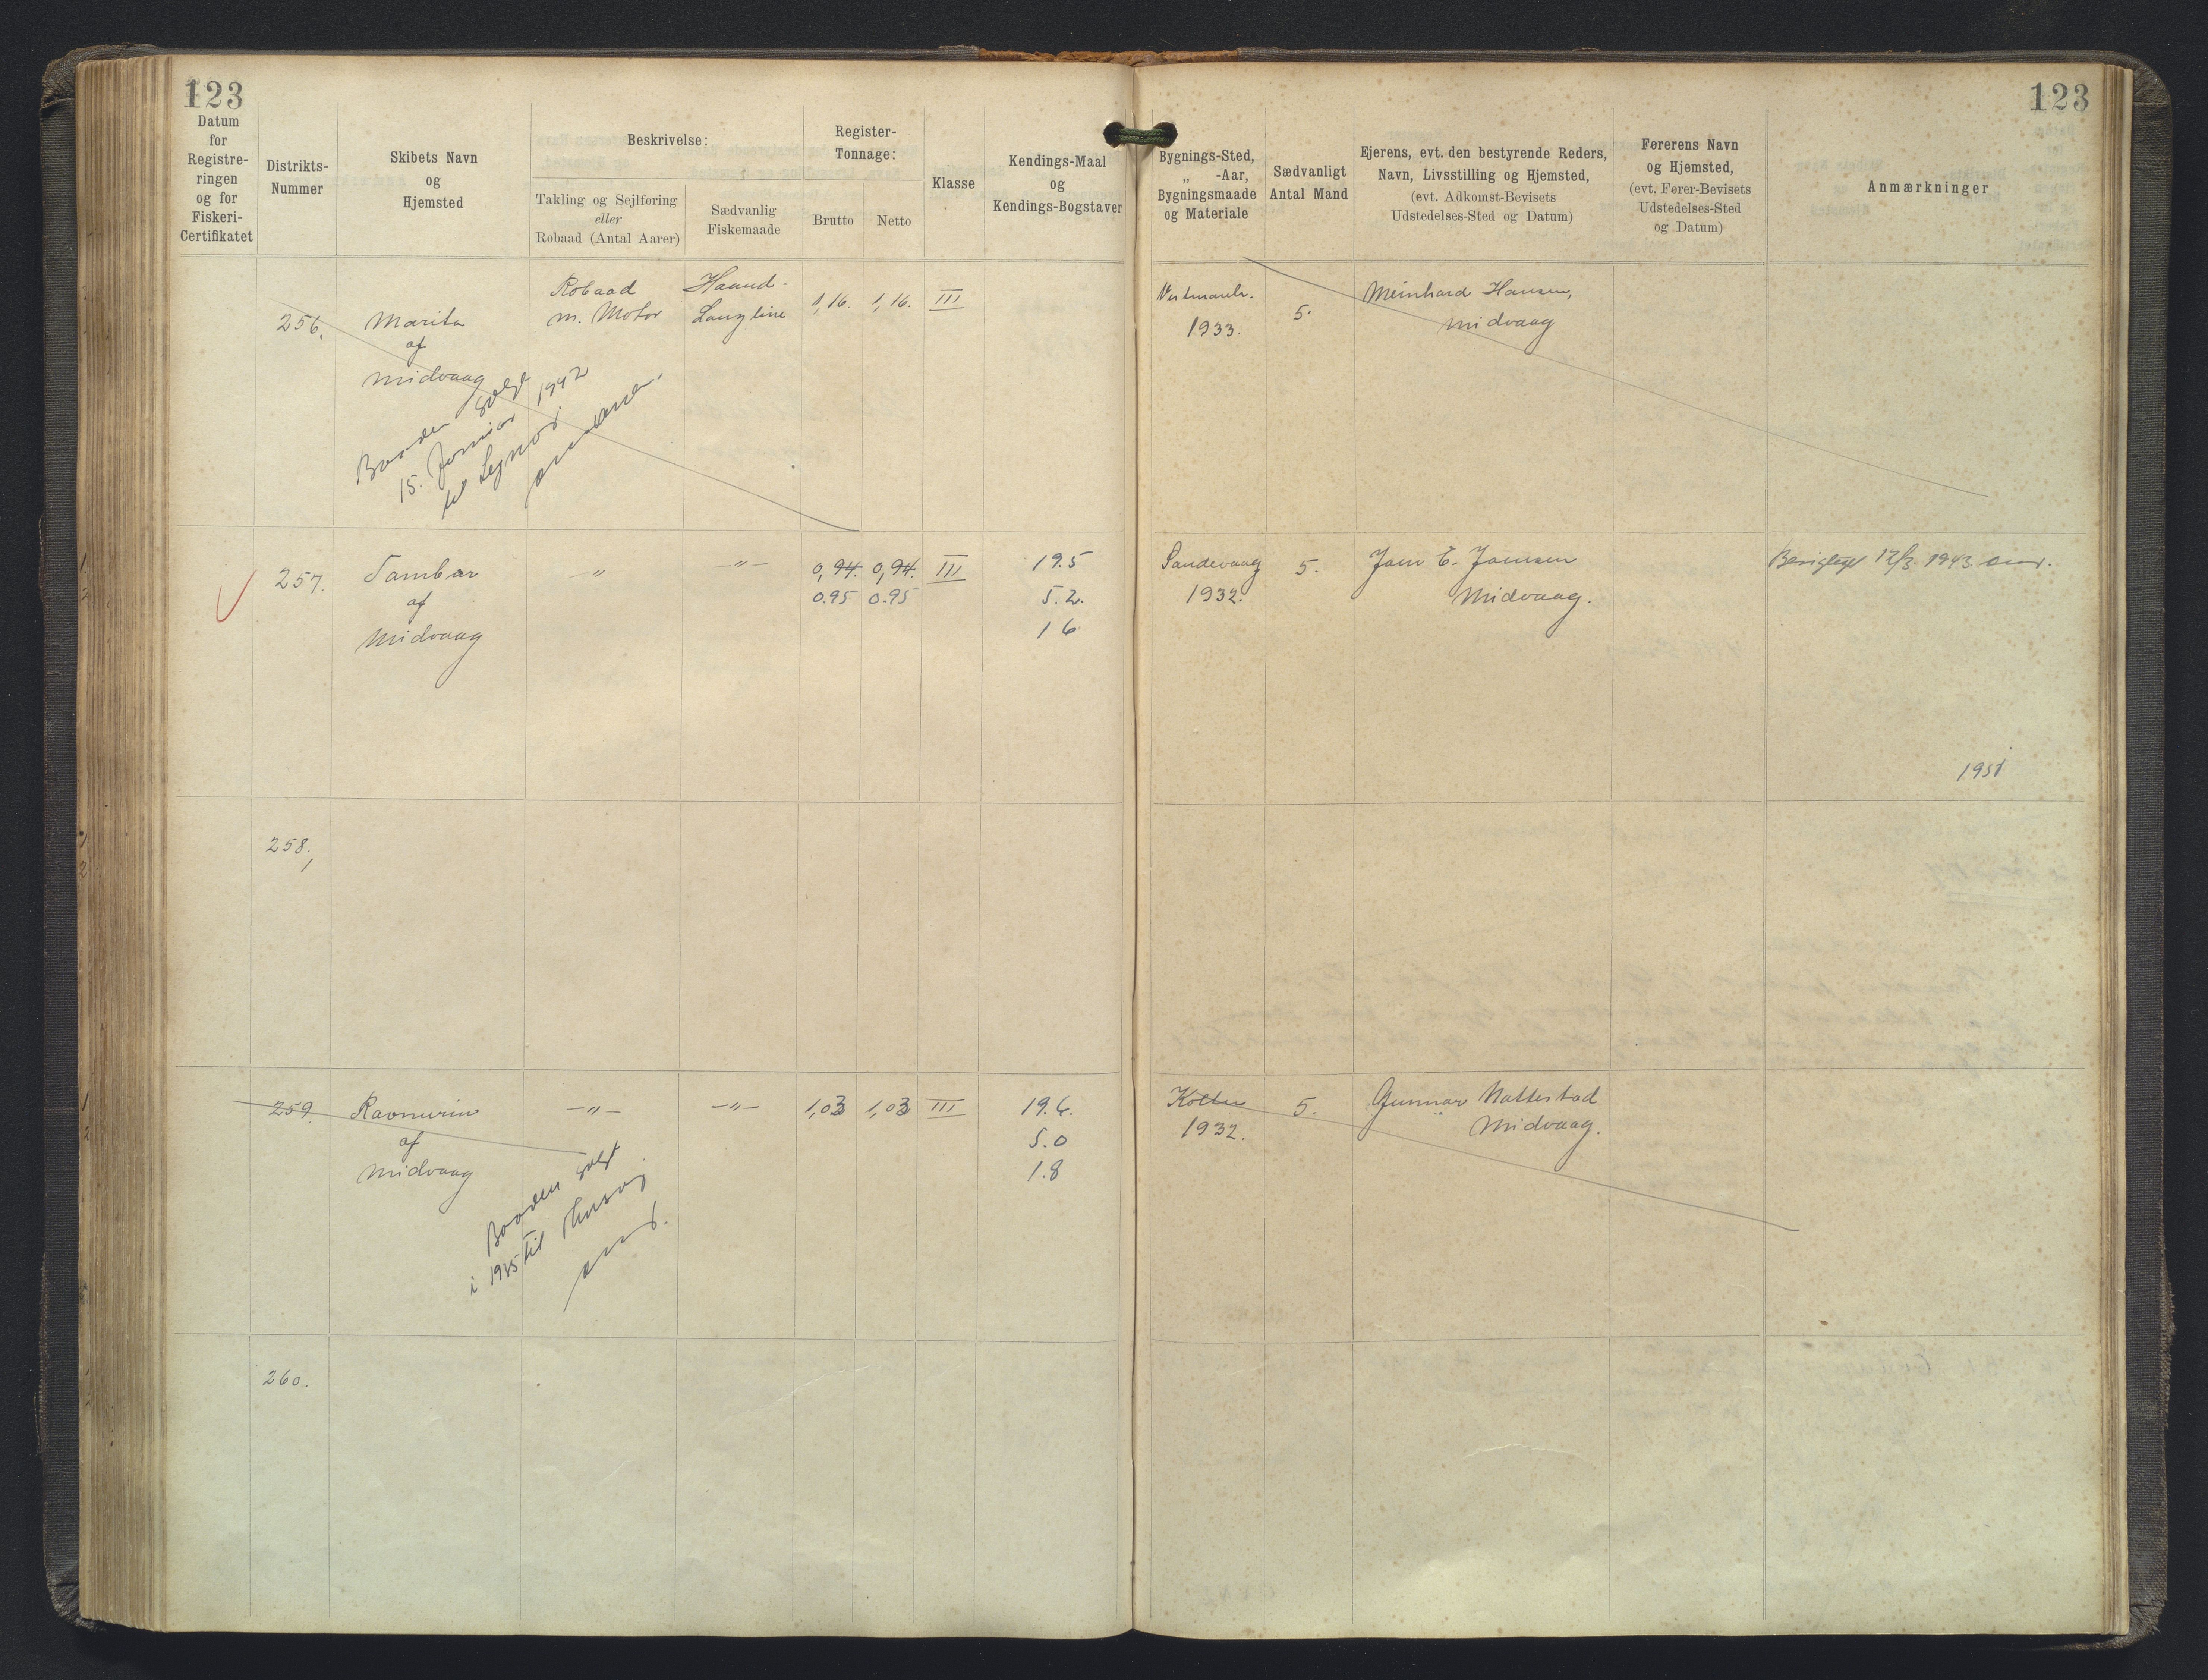 123
Datum
for
Registre-
ringen
og for
Fiskeri-
Certifikatet
Distrikts-
Nummer
Skibets Navn
og
Hjemsted
Beskrivelse:
Takling og Sejlføring
eller
Robaad (Antal Aarer)
Sædvanlig
Fiskemaade
Register-
Tonnage:
Brutto
Netto
Klasse
Kendings-Maal
og
Kendings-Bogstaver
123
Bygnings-Sted,
„ -Aar,
Bygningsmaade
og Materiale
Sædvanligt
Antal Mand
Ejerens, evt. den bestyrende Reders,
Navn, Livsstilling og Hjemsted,
(evt. Adkomst-Bevisets
Udstedelses-Sted og Datum)
Førerens Navn
og Hjemsted,
(evt. Fører-Bevisets
Udstedelses-Sted
og Datum)
Anmærkninger
256.
Marita
af
Midvaag
Robaad
m. Motor
Haand-
Langline
1,16. 1,16. III
Vestmanh.
1933.
5.
Meinhard Hansen,
Midvaag
Baaden solgt
15. Januar 1942
til
257.
Tambar
af
Midvaag
—"—
—"—
0,94. 0,94. III
0.95 0.95
19.5
5.2.
16
Sandevaag
1932.
5.
Midvaag.
Besigtiget 12/3. 1943
1951
258.
259.
af
Midvaag
—"—
—"—
1,03 1,03 III
19.6.
5.0
1.8
1932.
5.
Gunnar Nattestad
Midvaag.
Baaden solgt
i 1935 til
260.